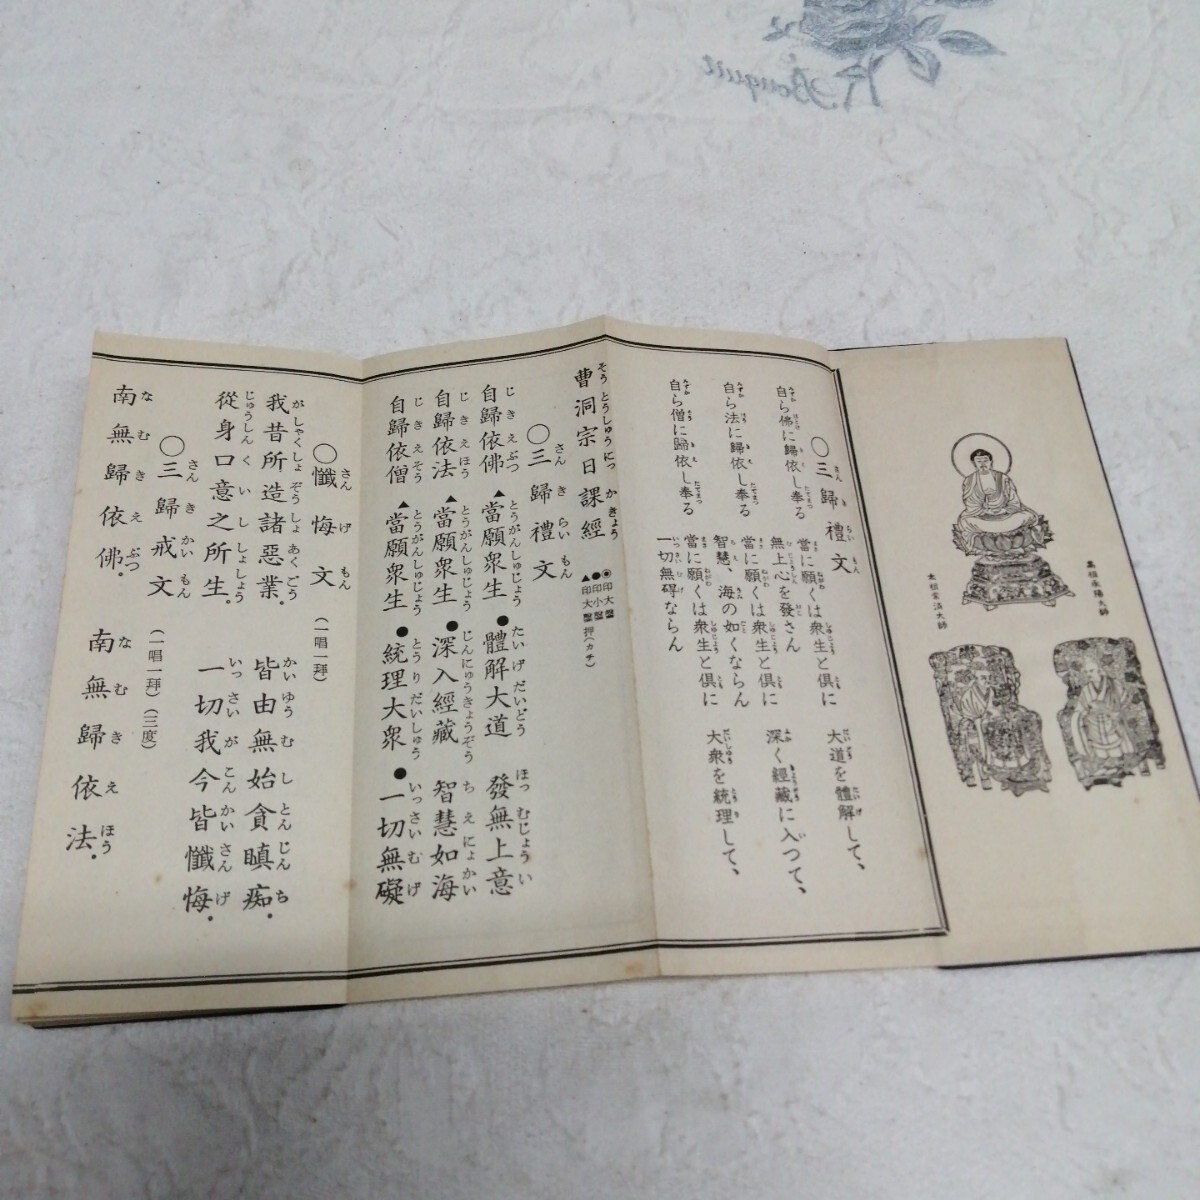 Bouquet
高祖承陽大師
太祖常済大師
〇三歸禮文
自ら佛に歸依し奉る 當に願くは衆生と倶に 大道を體解して、
無上心を發さん
自ら法に歸依し奉る 當に願くは衆生と倶に 深く經藏に入つて、
智慧、海の如くならん
自ら僧に歸依し奉る 當に願くは衆生と倶に 大衆を統理して、
一切無碍ならん
曹洞宗日課經
◉印大磬
●印小磬
▲印大磬押(カチ)
〇三歸禮文
自歸依佛 ▲當願衆生 ●體解大道 發無上意
自歸依法 ▲當願衆生 ●深入經藏 智慧如海
自歸依僧 ▲當願衆生 ●統理大衆 ●一切無礙
〇懺悔文 (一唱一拜)
我昔所造諸惡業。 皆由無始貪瞋痴。
從身口意之所生。 一切我今皆懺悔。
〇三歸戒文 (一唱一拜)(三度)
南無歸依佛。 南無歸依法。